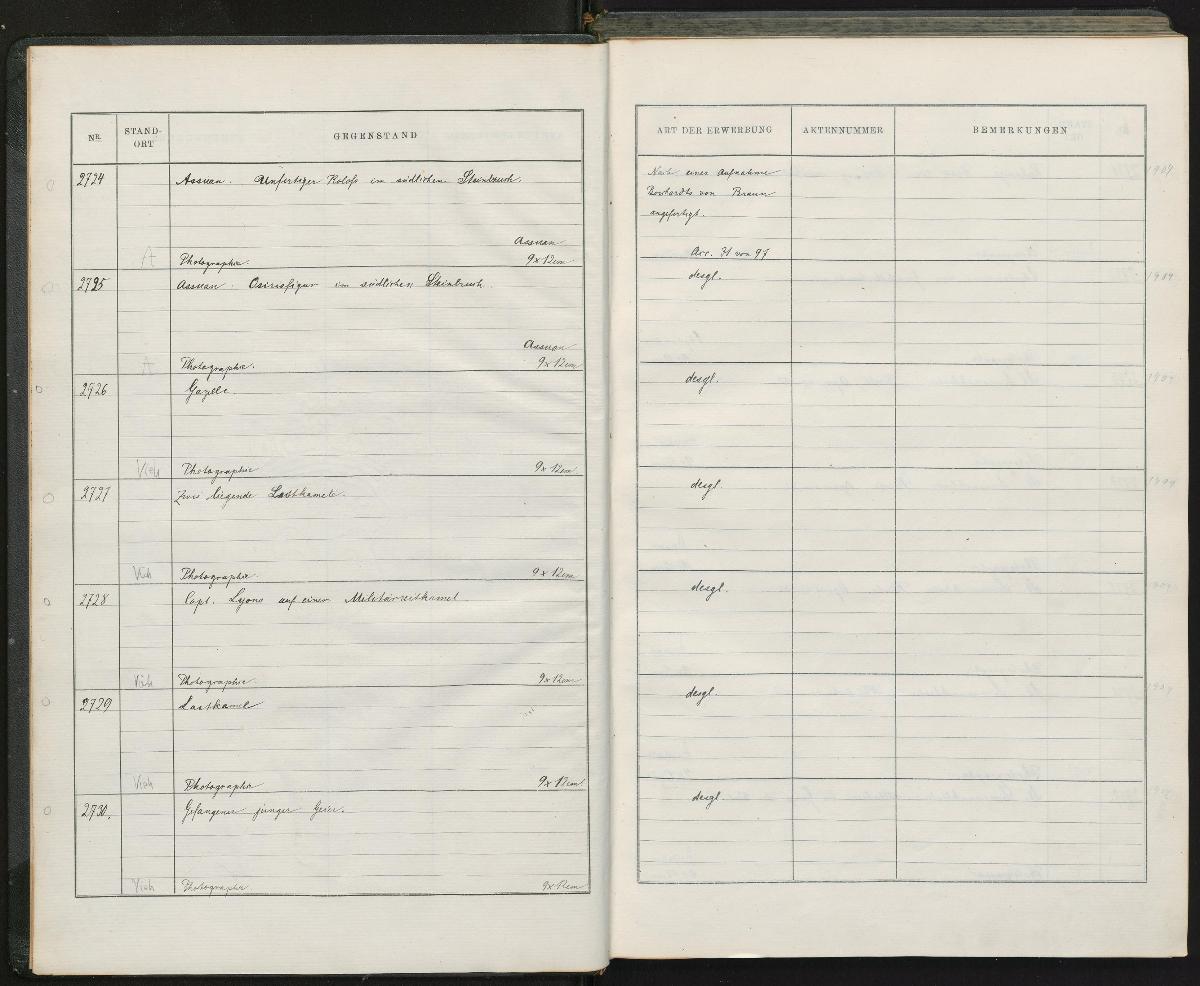 NR. STAND-ORT GEGENSTAND
2724 Assuan. Unfertiger Koloß im südlichen Steinbruch.
Assuan
A Photographie. 9x12cm
2725 Assuan. Osirisfigur im südlichen Steinbruch.
Assuan
A Photographie. 9x12cm
2726 Gazelle.
Vieh Photographie 9x12cm
2727 Zwei liegende Lastkamele.
Vieh Photographie. 9x12cm
2728 Capt. Lyons auf einem Militärreitkamel
Vieh Photographie. 9x12cm
2729 Lastkamel
Vieh Photographie 9x12cm
2730. Gefangener junger Geier.
Vieh Photographie 9x12cm
ART DER ERWERBUNG AKTENNUMMER BEMERKUNGEN
Nach einer Aufnahme
Borchardts von Braun
angefertigt.
Acc. 31 von 97
desgl.
desgl.
desgl.
desgl.
desgl.
desgl.